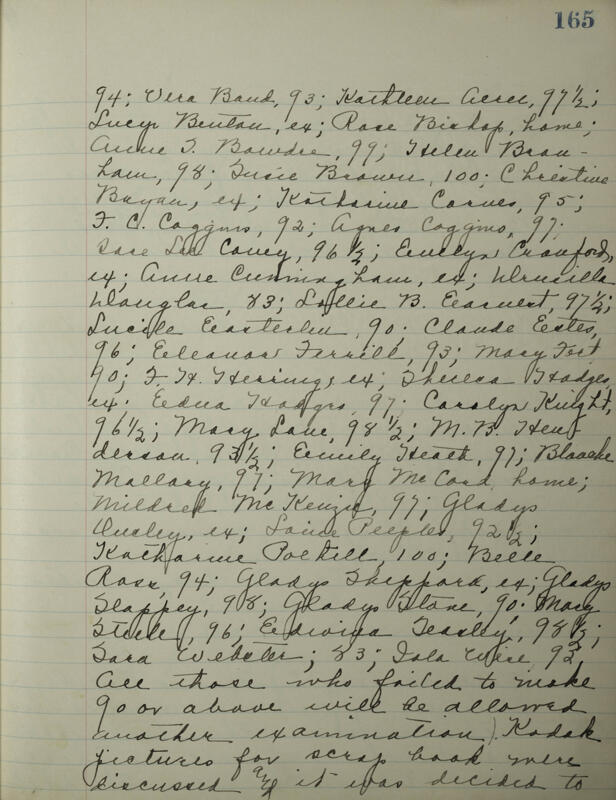 165
94; Vera Band, 93; Kathleen Acree, 97½;
Lucy Benton, ex; Rose Bishop, home;
Anne T. Bowdre, 99; Helen Bran-
ham, 98; Susie Brown, 100; Christine
Bryan, ex; Katharine Carnes, 95;
F. C. Coggins, 92; Agnes Coggins, 97;
Lee Covey, 96½; Evelyn Crawford,
ex; Anne Cunningham, ex; Drusilla
Douglas, 83; Lollie B. Earnest, 97½;
Lucile Easterlin, 90; Claude Estes,
96; Eleanor Ferrill, 93; Mary Fort
90; F. H. Herring, ex; Hodges,
ex; Edna Hodges, 97; Carolyn Knight,
96½; Mary Lane, 98½; M. B. Hen-
derson, 93½; Emily Heath, 97; Blanche
Mallary, 97; Mary McCord, home;
Mildred McKenzie, 97; Gladys
ex; Peeples, 92½;
Katharine Polhill, 100; Belle
Ross, 94; Gladys Sheppard, ex; Gladys
Slappey, 98; Gladys Stone, 90; Mary
Steele, 96; Edwina Teasley, 98½;
Sara Webster; 83; Iola Wise, 92,
All those who failed to make
90 or above will be allowed
another examination) Kodak
pictures for scrap book were
discussed & it was decided to